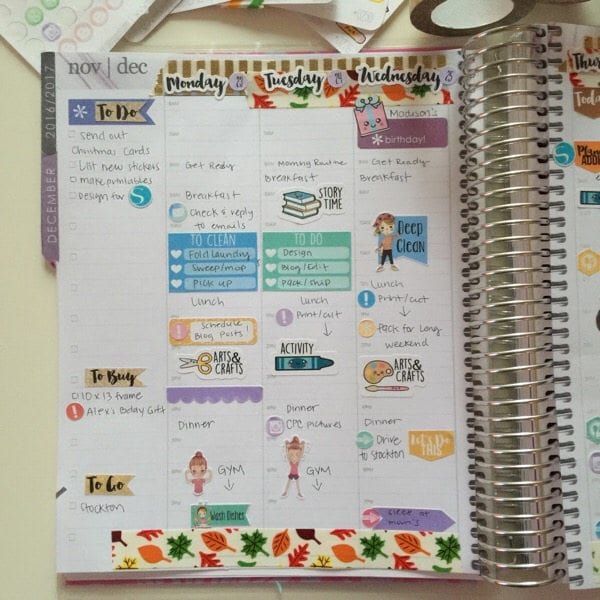 nov | dec
DECEMBER
2016/2017
Monday
Tuesday
Wednesday
To Do
send out
Christmas cards
List new stickers
make printables
Design for S
To Buy
10 x 13 frame
Alex's Bday Gift
To Go
Stockton
Get Ready
Breakfast
Check & reply
to emails
TO CLEAN
Fold laundry
Sweep/mop
Pick up
Lunch
Schedule
Blog Posts!
ARTS&
CRAFTS
Dinner
GYM
Wash Dishes
Morning Routine
Breakfast
STORY
TIME
TO DO
Design
Blog/Edit
Pack/ship
Lunch
Print/cut
ACTIVITY
Dinner
CPC pictures
GYM
Madison's
birthday!
Get Ready
Breakfast
Deep
Clean
Lunch
Print/cut
Pack for Long
weekend
ARTS&
CRAFTS
Dinner
Drive
to Stockton
Let's Do
THIS
Sleep at
mom's
Thur
Toda
Plan
ADDI